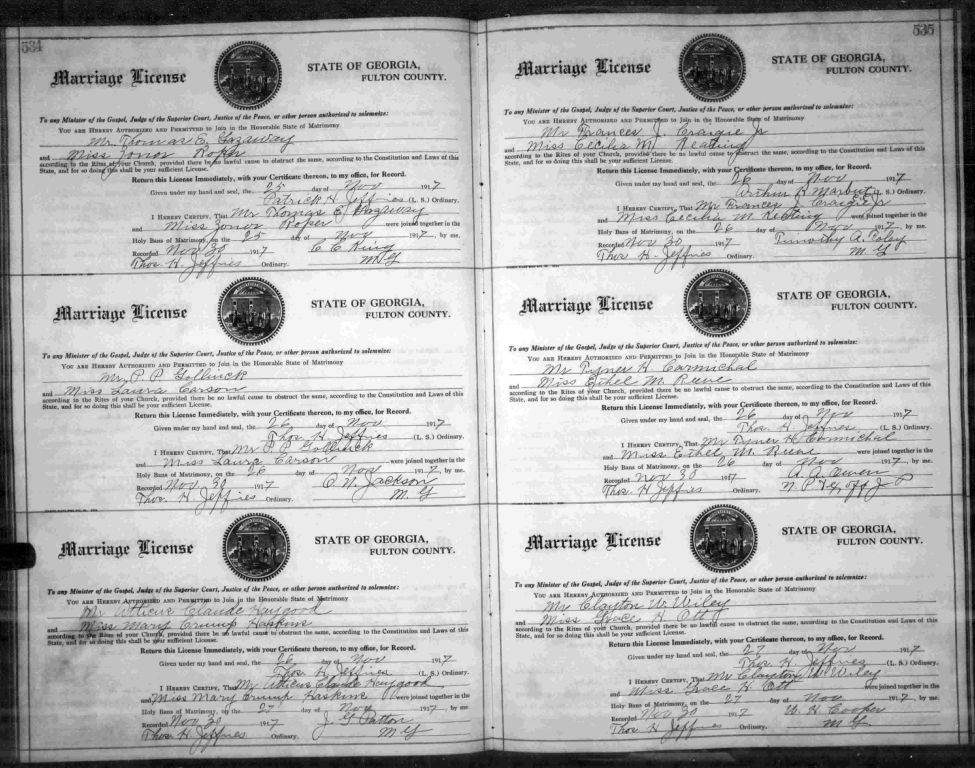 534
Marriage License
STATE OF GEORGIA,
FULTON COUNTY.
To any Minister of the Gospel, Judge of the Superior Court, Justice of the Peace, or other person authorized to solemnize:
YOU ARE HEREBY AUTHORIZED AND PERMITTED to Join in the Honorable State of Matrimony
Mr Thomas E. Gazaway
and Miss Zonor Roper
according to the Rites of your Church, provided there be no lawful cause to obstruct the same, according to the Constitution and Laws of this
State, and for so doing this shall be your sufficient License.
Return this License Immediately, with your Certificate thereon, to my office, for Record.
Given under my hand and seal, the 25 day of Nov 1917
Patrick H Jeffries (L. S.) Ordinary.
I HEREBY CERTIFY, That Mr Thomas E Gazaway
and Miss Zonor Roper were joined together in the
Holy Bans of Matrimony, on the 25 day of Nov 1917, by me.
Recorded Nov 30 1917 C C King
Thos H Jeffries Ordinary. M.G
Marriage License
STATE OF GEORGIA,
FULTON COUNTY.
To any Minister of the Gospel, Judge of the Superior Court, Justice of the Peace, or other person authorized to solemnize:
YOU ARE HEREBY AUTHORIZED AND PERMITTED to Join in the Honorable State of Matrimony
Mr P. P. Gollnick
and Miss Laura Carson
according to the Rites of your Church, provided there be no lawful cause to obstruct the same, according to the Constitution and Laws of this
State, and for so doing this shall be your sufficient License.
Return this License Immediately, with your Certificate thereon, to my office, for Record.
Given under my hand and seal, the 26 day of Nov 1917
Thos H Jeffries (L. S.) Ordinary.
I HEREBY CERTIFY, That Mr P. P. Gollnick
and Miss Laura Carson were joined together in the
Holy Bans of Matrimony, on the 26 day of Nov 1917, by me.
Recorded Nov. 30 1917 C N. Jackson
Thos H Jeffries Ordinary. M. G
Marriage License
STATE OF GEORGIA,
FULTON COUNTY.
To any Minister of the Gospel, Judge of the Superior Court, Justice of the Peace, or other person authorized to solemnize:
YOU ARE HEREBY AUTHORIZED AND PERMITTED to Join in the Honorable State of Matrimony
Mr Atticus Claude Haygood
and Miss Mary Crump Haskins
according to the Rites of your Church, provided there be no lawful cause to obstruct the same, according to the Constitution and Laws of this
State, and for so doing this shall be your sufficient License.
Return this License Immediately, with your Certificate thereon, to my office, for Record.
Given under my hand and seal, the 26 day of Nov 1917
Thos H Jeffries (L. S.) Ordinary.
I HEREBY CERTIFY, That Mr Atticus Claude Haygood
and Miss Mary Crump Haskins were joined together in the
Holy Bans of Matrimony, on the 27 day of Nov 1917, by me.
Recorded Nov 30 1917 J G Patton
Thos H Jeffries Ordinary. M G
535
Marriage License
STATE OF GEORGIA,
FULTON COUNTY.
To any Minister of the Gospel, Judge of the Superior Court, Justice of the Peace, or other person authorized to solemnize:
YOU ARE HEREBY AUTHORIZED AND PERMITTED to Join in the Honorable State of Matrimony
Mr Frances J. Craigie Jr
and Miss Cecilia M Keating
according to the Rites of your Church, provided there be no lawful cause to obstruct the same, according to the Constitution and Laws of this
State, and for so doing this shall be your sufficient License.
Return this License Immediately, with your Certificate thereon, to my office, for Record.
Given under my hand and seal, the 26 day of Nov 1917
Arthur R Marbut (L. S.) Ordinary.
I HEREBY CERTIFY, That Mr Frances J. Craigie Jr
and Miss Cecilia M Keating were joined together in the
Holy Bans of Matrimony, on the 26 day of Nov 1917, by me.
Recorded Nov 30 1917 Timothy A.
Thos H. Jeffries Ordinary. M G
Marriage License
STATE OF GEORGIA,
FULTON COUNTY.
To any Minister of the Gospel, Judge of the Superior Court, Justice of the Peace, or other person authorized to solemnize:
YOU ARE HEREBY AUTHORIZED AND PERMITTED to Join in the Honorable State of Matrimony
Mr Tyner H Carmichal
and Miss Ethel M. Ruene
according to the Rites of your Church, provided there be no lawful cause to obstruct the same, according to the Constitution and Laws of this
State, and for so doing this shall be your sufficient License.
Return this License Immediately, with your Certificate thereon, to my office, for Record.
Given under my hand and seal, the 26 day of Nov 1917
Thos H Jeffries (L. S.) Ordinary.
I HEREBY CERTIFY, That Mr Tyner H Carmichal
and Miss Ethel M. were joined together in the
Holy Bans of Matrimony, on the 26 day of Nov 1917, by me.
Recorded Nov 30 1917 A. A. Owen
Thos H Jeffries Ordinary. N. P. & J P
Marriage License
STATE OF GEORGIA,
FULTON COUNTY.
To any Minister of the Gospel, Judge of the Superior Court, Justice of the Peace, or other person authorized to solemnize:
YOU ARE HEREBY AUTHORIZED AND PERMITTED to Join in the Honorable State of Matrimony
Mr Clayton W. Wiley
and Miss Grace H Ott
according to the Rites of your Church, provided there be no lawful cause to obstruct the same, according to the Constitution and Laws of this
State, and for so doing this shall be your sufficient License.
Return this License Immediately, with your Certificate thereon, to my office, for Record.
Given under my hand and seal, the 27 day of Nov 1917
Thos H Jeffries (L. S.) Ordinary.
I HEREBY CERTIFY, That Mr Clayton W. Wiley
and Miss Grace H Ott were joined together in the
Holy Bans of Matrimony, on the 27 day of Nov 1917, by me.
Recorded Nov 30 1917 W. H Cooper
Thos H Jeffries Ordinary. M G